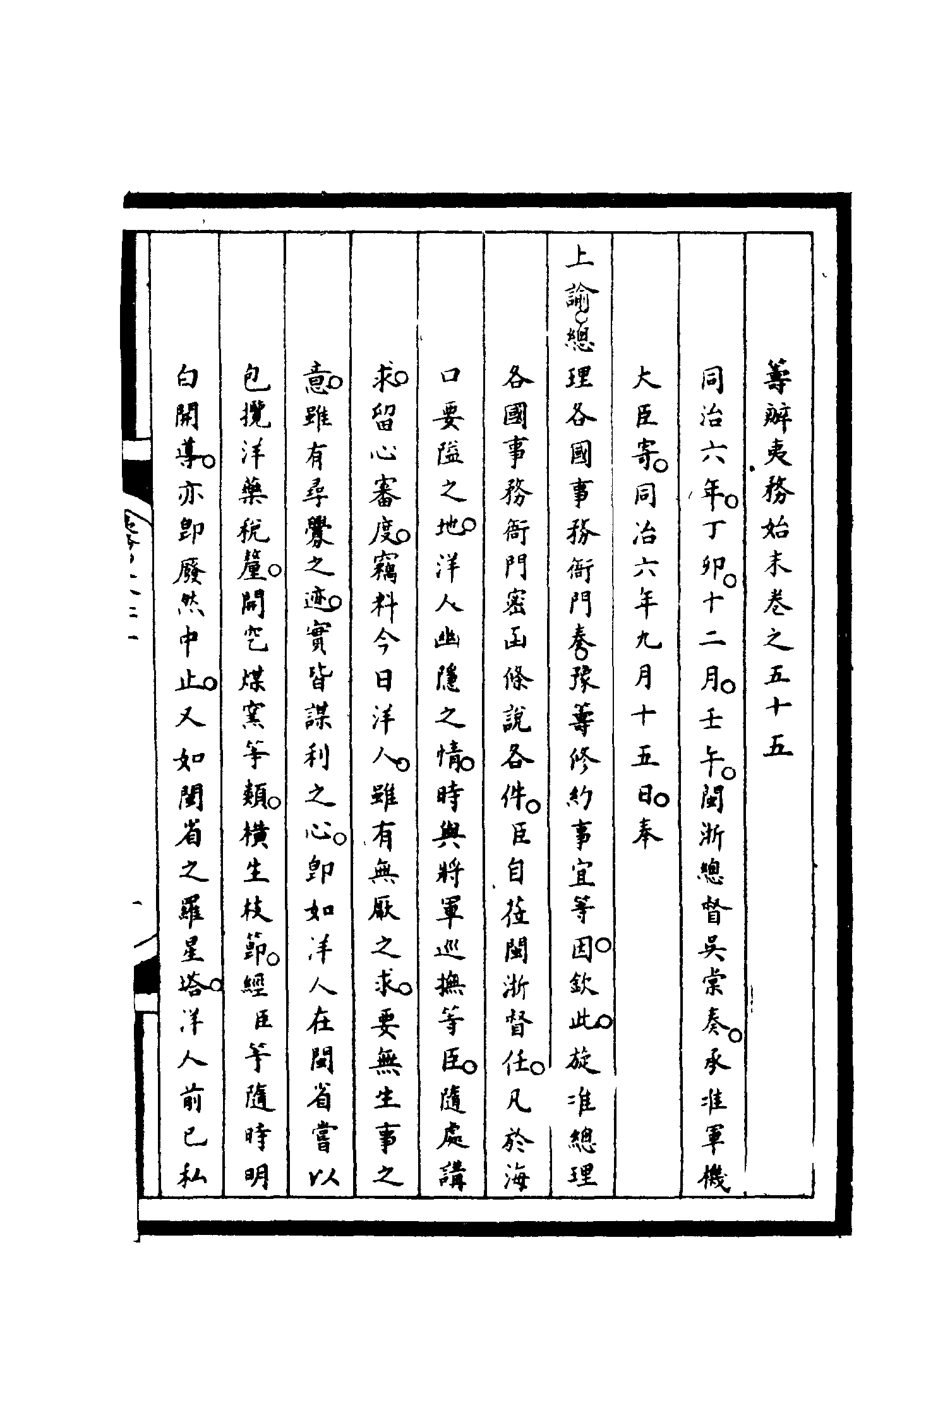 籌辦夷務始末卷之五十五
同治六年。丁卯。十二月。壬午。閩浙總督吳棠奏。承准軍機
大臣寄。同治六年九月十五日。奉
上諭。總理各國事務衙門奏。豫籌修約事宜等因。欽此。旋准總理
各國事務衙門密函條說各件。臣自莅閩浙督任。凡於海
口要隘之地。洋人幽隱之情。時與將軍巡撫等臣。隨處講
求。留心審度。竊料今日洋人。雖有無厭之求。要無生事之
意。雖有尋釁之迹。實皆謀利之心。卽如洋人在閩省嘗以
包攬洋藥稅釐。開空煤窯等類。橫生枝節。經臣等隨時明
白開導。亦卽廢然中止。又如閩省之羅星塔。洋人前已私